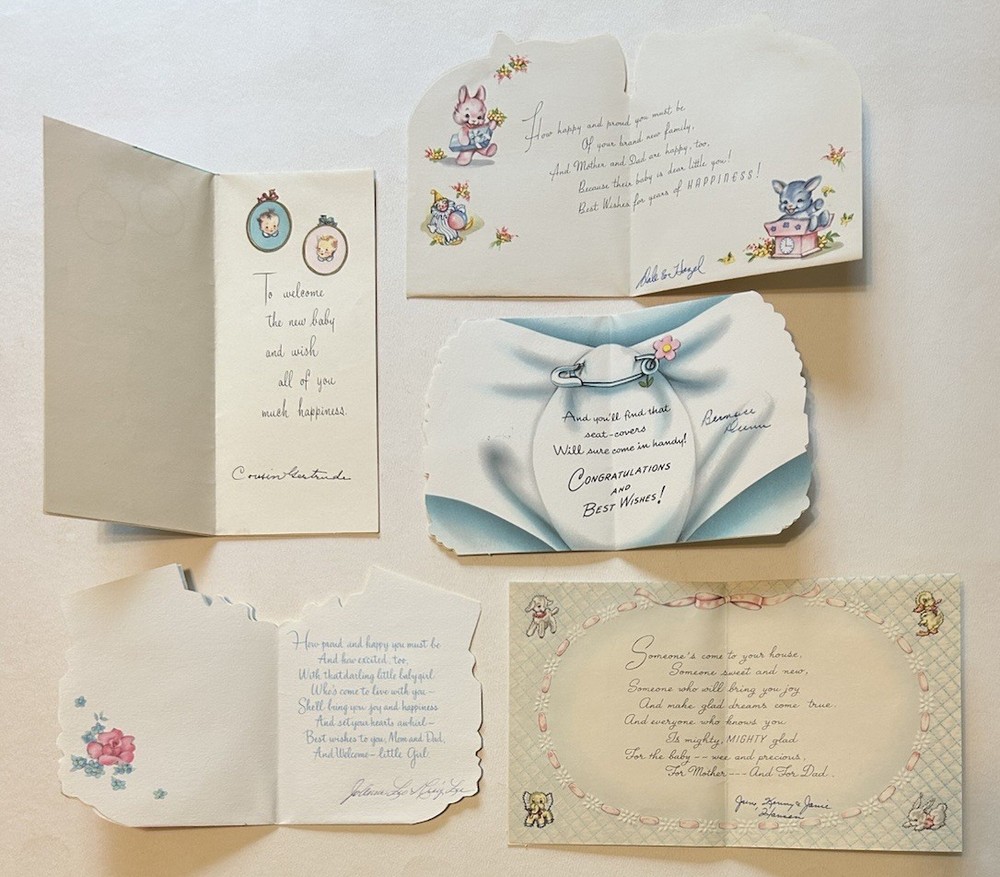 How happy and proud you must be
Of your brand new family,
And Mother and Dad are happy, too,
Because their baby is dear little you!
Best Wishes for years of HAPPINESS!
Dale & Hazel
To welcome
the new baby
and wish
all of you
much happiness.
Cousin Gertrude
And you'll find that
seat-covers
Will sure come in handy!
CONGRATULATIONS
AND
BEST WISHES!
Bernice
How proud and happy you must be
And how excited, too,
With that darling little baby girl
Who's come to live with you –
She'll bring you joy and happiness
And set your hearts awhirl –
Best wishes to you, Mom and Dad,
And Welcome – little Girl.
Someone's come to your house,
Someone sweet and new,
Someone who will bring you joy
And make glad dreams come true.
And everyone who knows you
Is mighty, MIGHTY glad
For the baby -- wee and precious,
For Mother --- And For Dad.
June, Kenny & Janie
Hansen